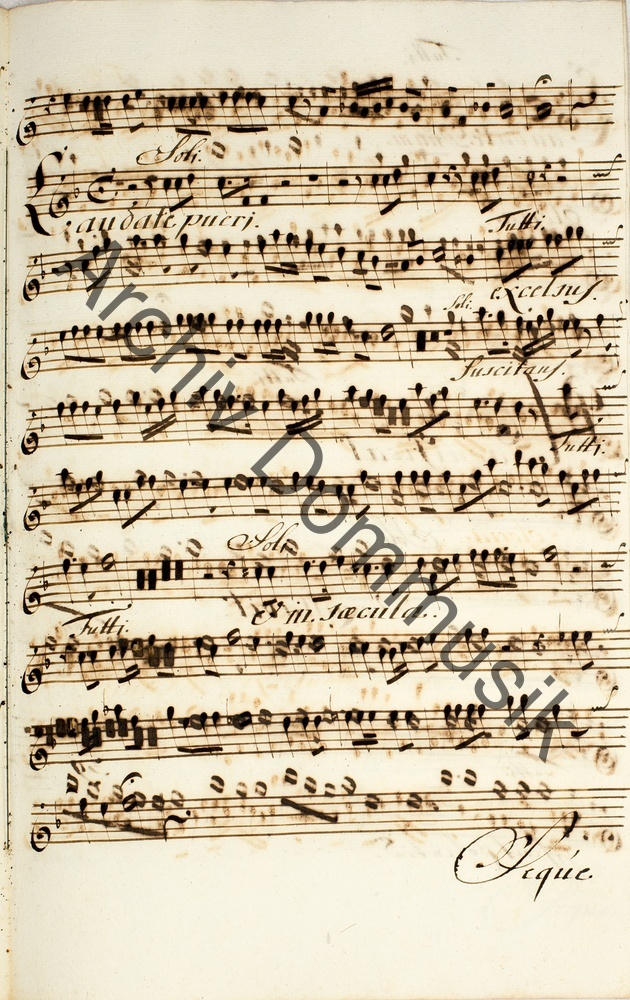 Soli.
Laudate pueri.
Tutti.
excelsus.
Soli.
suscitans.
Tutti.
Soli.
Tutti.
et in sæcula.
Seque.
Archiv Dommusik